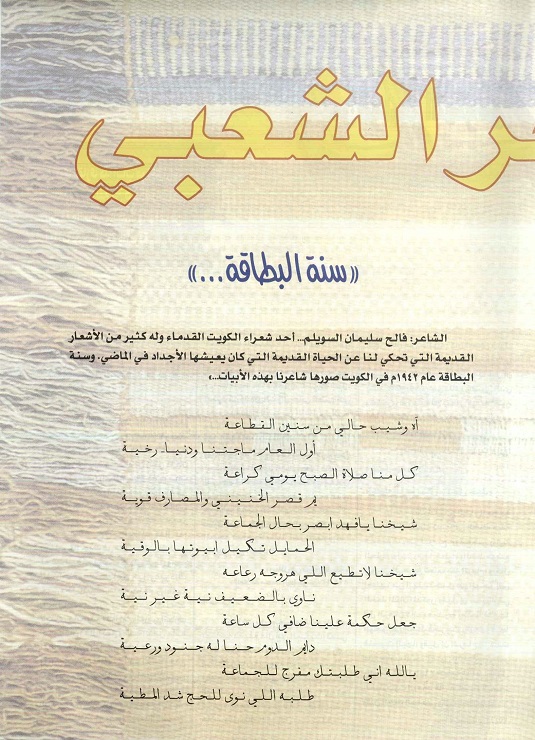 ر الشعبي
«سنة البطاقة...»
الشاعر: فالح سليمان السويلم... أحد شعراء الكويت القدماء وله كثير من الأشعار
القديمة التي تحكي لنا عن الحياة القديمة التي كان يعيشها الأجداد في الماضي. وسنة
البطاقة عام ١٩٤٢م في الكويت صورها شاعرنا بهذه الأبيات...»
آه وشيب حالي من سنين القطاعة
أول العام ماجتنا ودنيا رخية
كل منا صلاة الصبح يومي كراعة
يم قصر الخنيني والمصارف قوية
شيخنا يافهد ابصر بحال الجماعة
الحمايل تكيل ابيوتها بالوقية
شيخنا لاتطيع اللي هروجه رعاعه
ناوي بالضعيف نية غير نية
جعل حكمة علينا ضافي كل ساعة
دايم الدوم حنا له جنود ورعية
يالله اني طلبتك مفرج للجماعة
طلبه اللي نوى للحج شد المطية